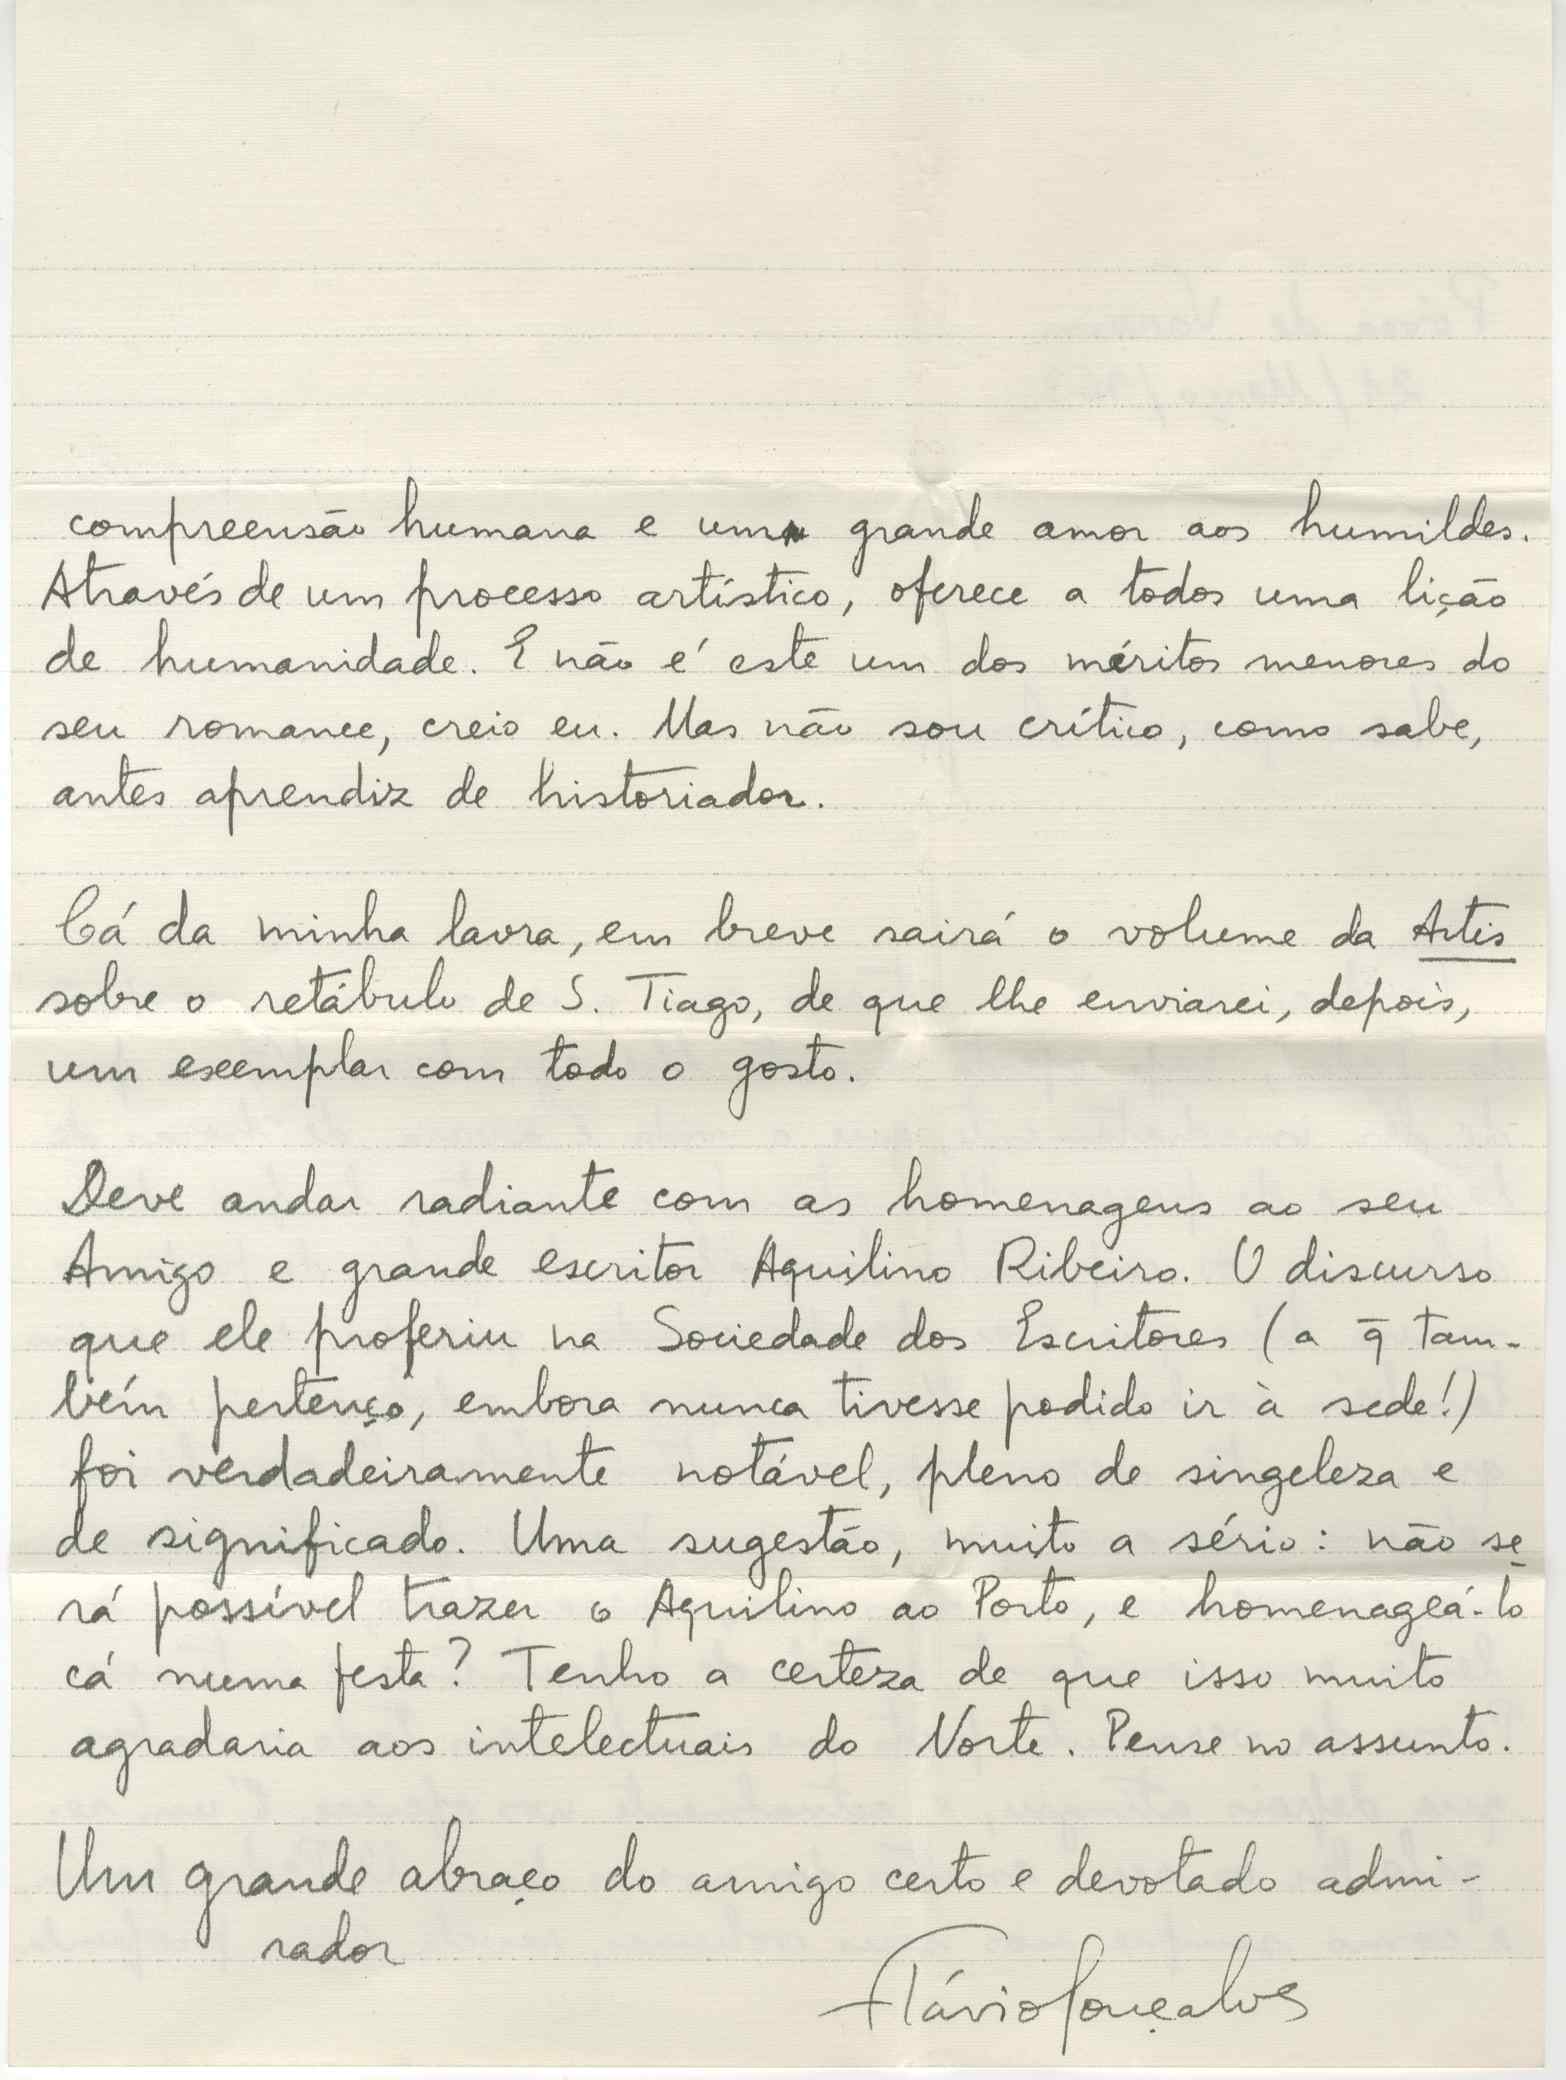 compreensão humana e um grande amor aos humildes.
Através de um processo artístico, oferece a todos uma lição
de humanidade. E não é este um dos méritos menores do
seu romance, creio eu. Mas não sou crítico, como sabe,
antes aprendiz de historiador.
Cá da minha lavra, em breve sairá o volume da Artis
sobre o retábulo de S. Tiago, de que lhe enviarei, depois,
um exemplar com todo o gosto.
Deve andar radiante com as homenagens ao seu
Amigo e grande escritor Aquilino Ribeiro. O discurso
que ele proferiu na Sociedade dos Escritores (a q̄ tam-
bém pertenço, embora nunca tivesse podido ir à sede!)
foi verdadeiramente notável, pleno de singeleza e
de significado. Uma sugestão, muito a sério: não se
rá possível trazer o Aquilino ao Porto, e homenageá-lo
cá numa festa? Tenho a certeza de que isso muito
agradaria aos intelectuais do Norte. Pense no assunto.
Um grande abraço do amigo certo e devotado admi-
rador
Flávio Gonçalves